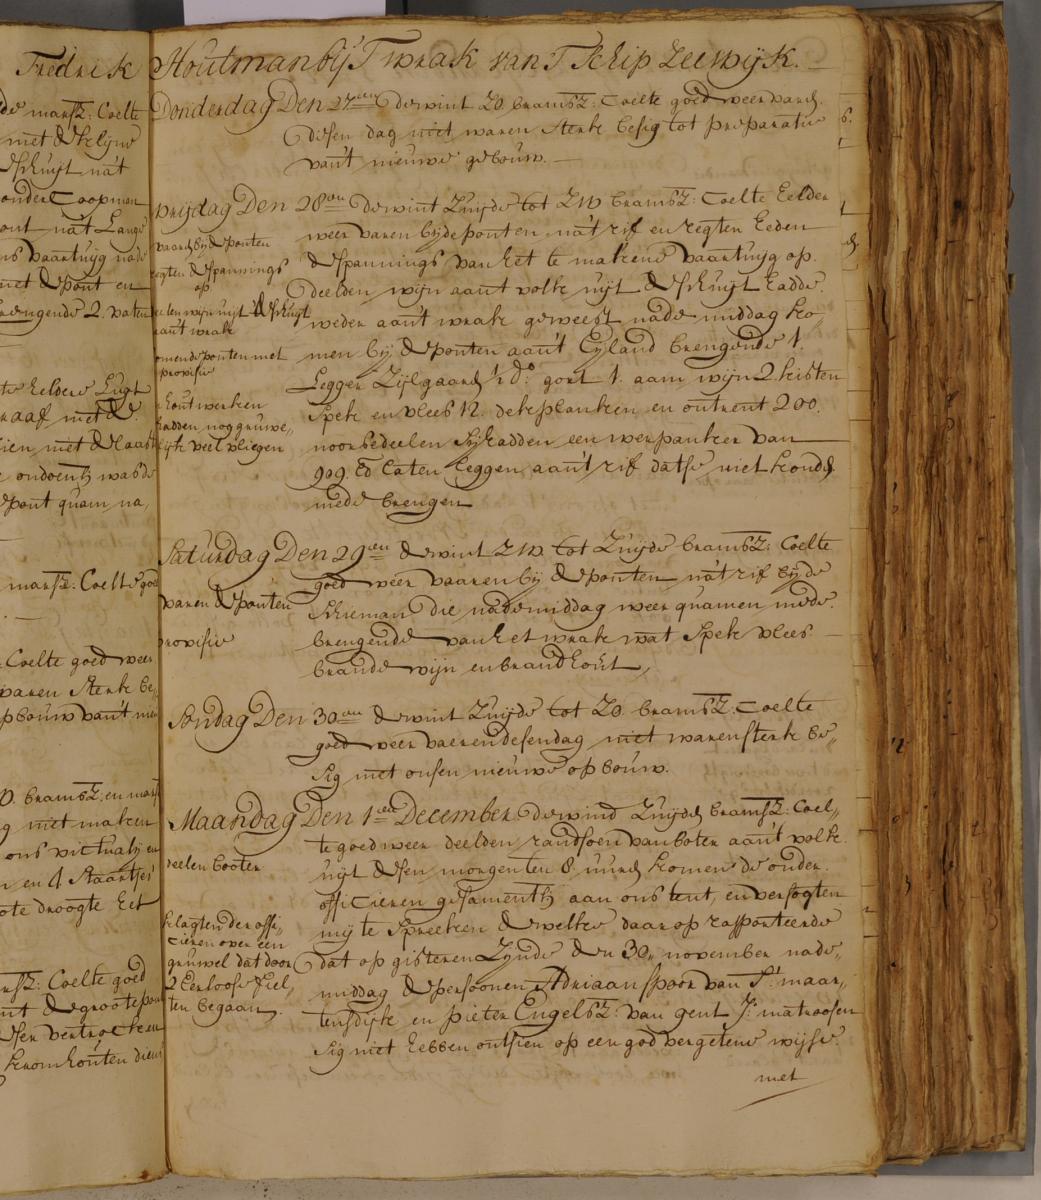 Fredrik Houtman bij T wrak van T Schip Zeewijk.
de marsz: Coelte
met de kleijne
de schuijt nat
onder Coopman
pont nat Lange
ons vaartuijg nade
met de pont en
brengende 2. vaten
heldere Lugt
graaf met de
sien met de laast
pont quam na,
marsz: Coelte goed
Coelte goed weer
waren sterk be,,
opbouw van't nieu
ZO. bramsz: en mars
niet maken
ons victualij en
en 4 Staartjes
grote droogte het
marsz: Coelte goed
de groote pon
desen vertrocken
kromhouten dien
Donderdag Den 27en de wint ZO bramsz: Coelte goed weer vard.
desen dag niet waren sterk besig tot preparatie
van't nieuwe gebouw. —
vrijdag Den 28en de wint Zuijde tot ZW bramsz: Coelte helder
weer varen bijde ponten na't rif en regten heden
de spannings van het te makene vaartuijg op.
deelden wijn aant volk uijt de schuijt hadde
weder aan't wrak geweest nade middag ko,,
men bij de ponten aan't Eyland brengende 1.
Legger Zijlgaard 1 do: gort 1. aam wijn 2 kisten
spek en vlees 12. dekplanken en ontrent 200.
noorsedeelen sij hadden een werpanker van
909. lb laten leggen aan't rif datse niet konde
mede brengen
vaard bijde ponten
regten de spannings
op
deelen wijn uijt de schuijt
aan't wrak
komende ponten met
provisie
hout werken
hadden nog gruwe,,
lijk veel vliegen
Saturdag Den 29en de wint ZW tot Zuijde bramsz: Coelte
goed weer vaaren bij de ponten na't rif bijde
schieman die nademiddag weer quamen mede
brengende van het wrak wat spek vlees
brande wijn en brandhout,
varen de ponten
provisie
Sondag Den 30en de wint Zuijde tot ZO. bramsz: Coelte
goed weer vaeren desen dag niet waren sterk be,,
sig met onsen nieuwe opbouw.
Maandag Den 1en December de wind Zuijde bramsz: Coel,,
te goed weer deelden randsoen van boter aan't volk
uijt desen morgen ten 8 uure komen de onder
officieren gesamentl aan ons tent, en versogten
mij te spreeken dewelke daar op rapporteerde
dat op gisteren Zijnde den 30,, november nade,,
middag de persoonen Adriaan spoor van St: maar,,
tensdijk en pieter Engelsz: van gent J: matroosen
sig niet hebben ontsien op een god vergetene wijse
met
deelen booter
klagten der offi,,
cieren over een
gruwel dat door
2 Eerloose fiel,,
ten begaan.